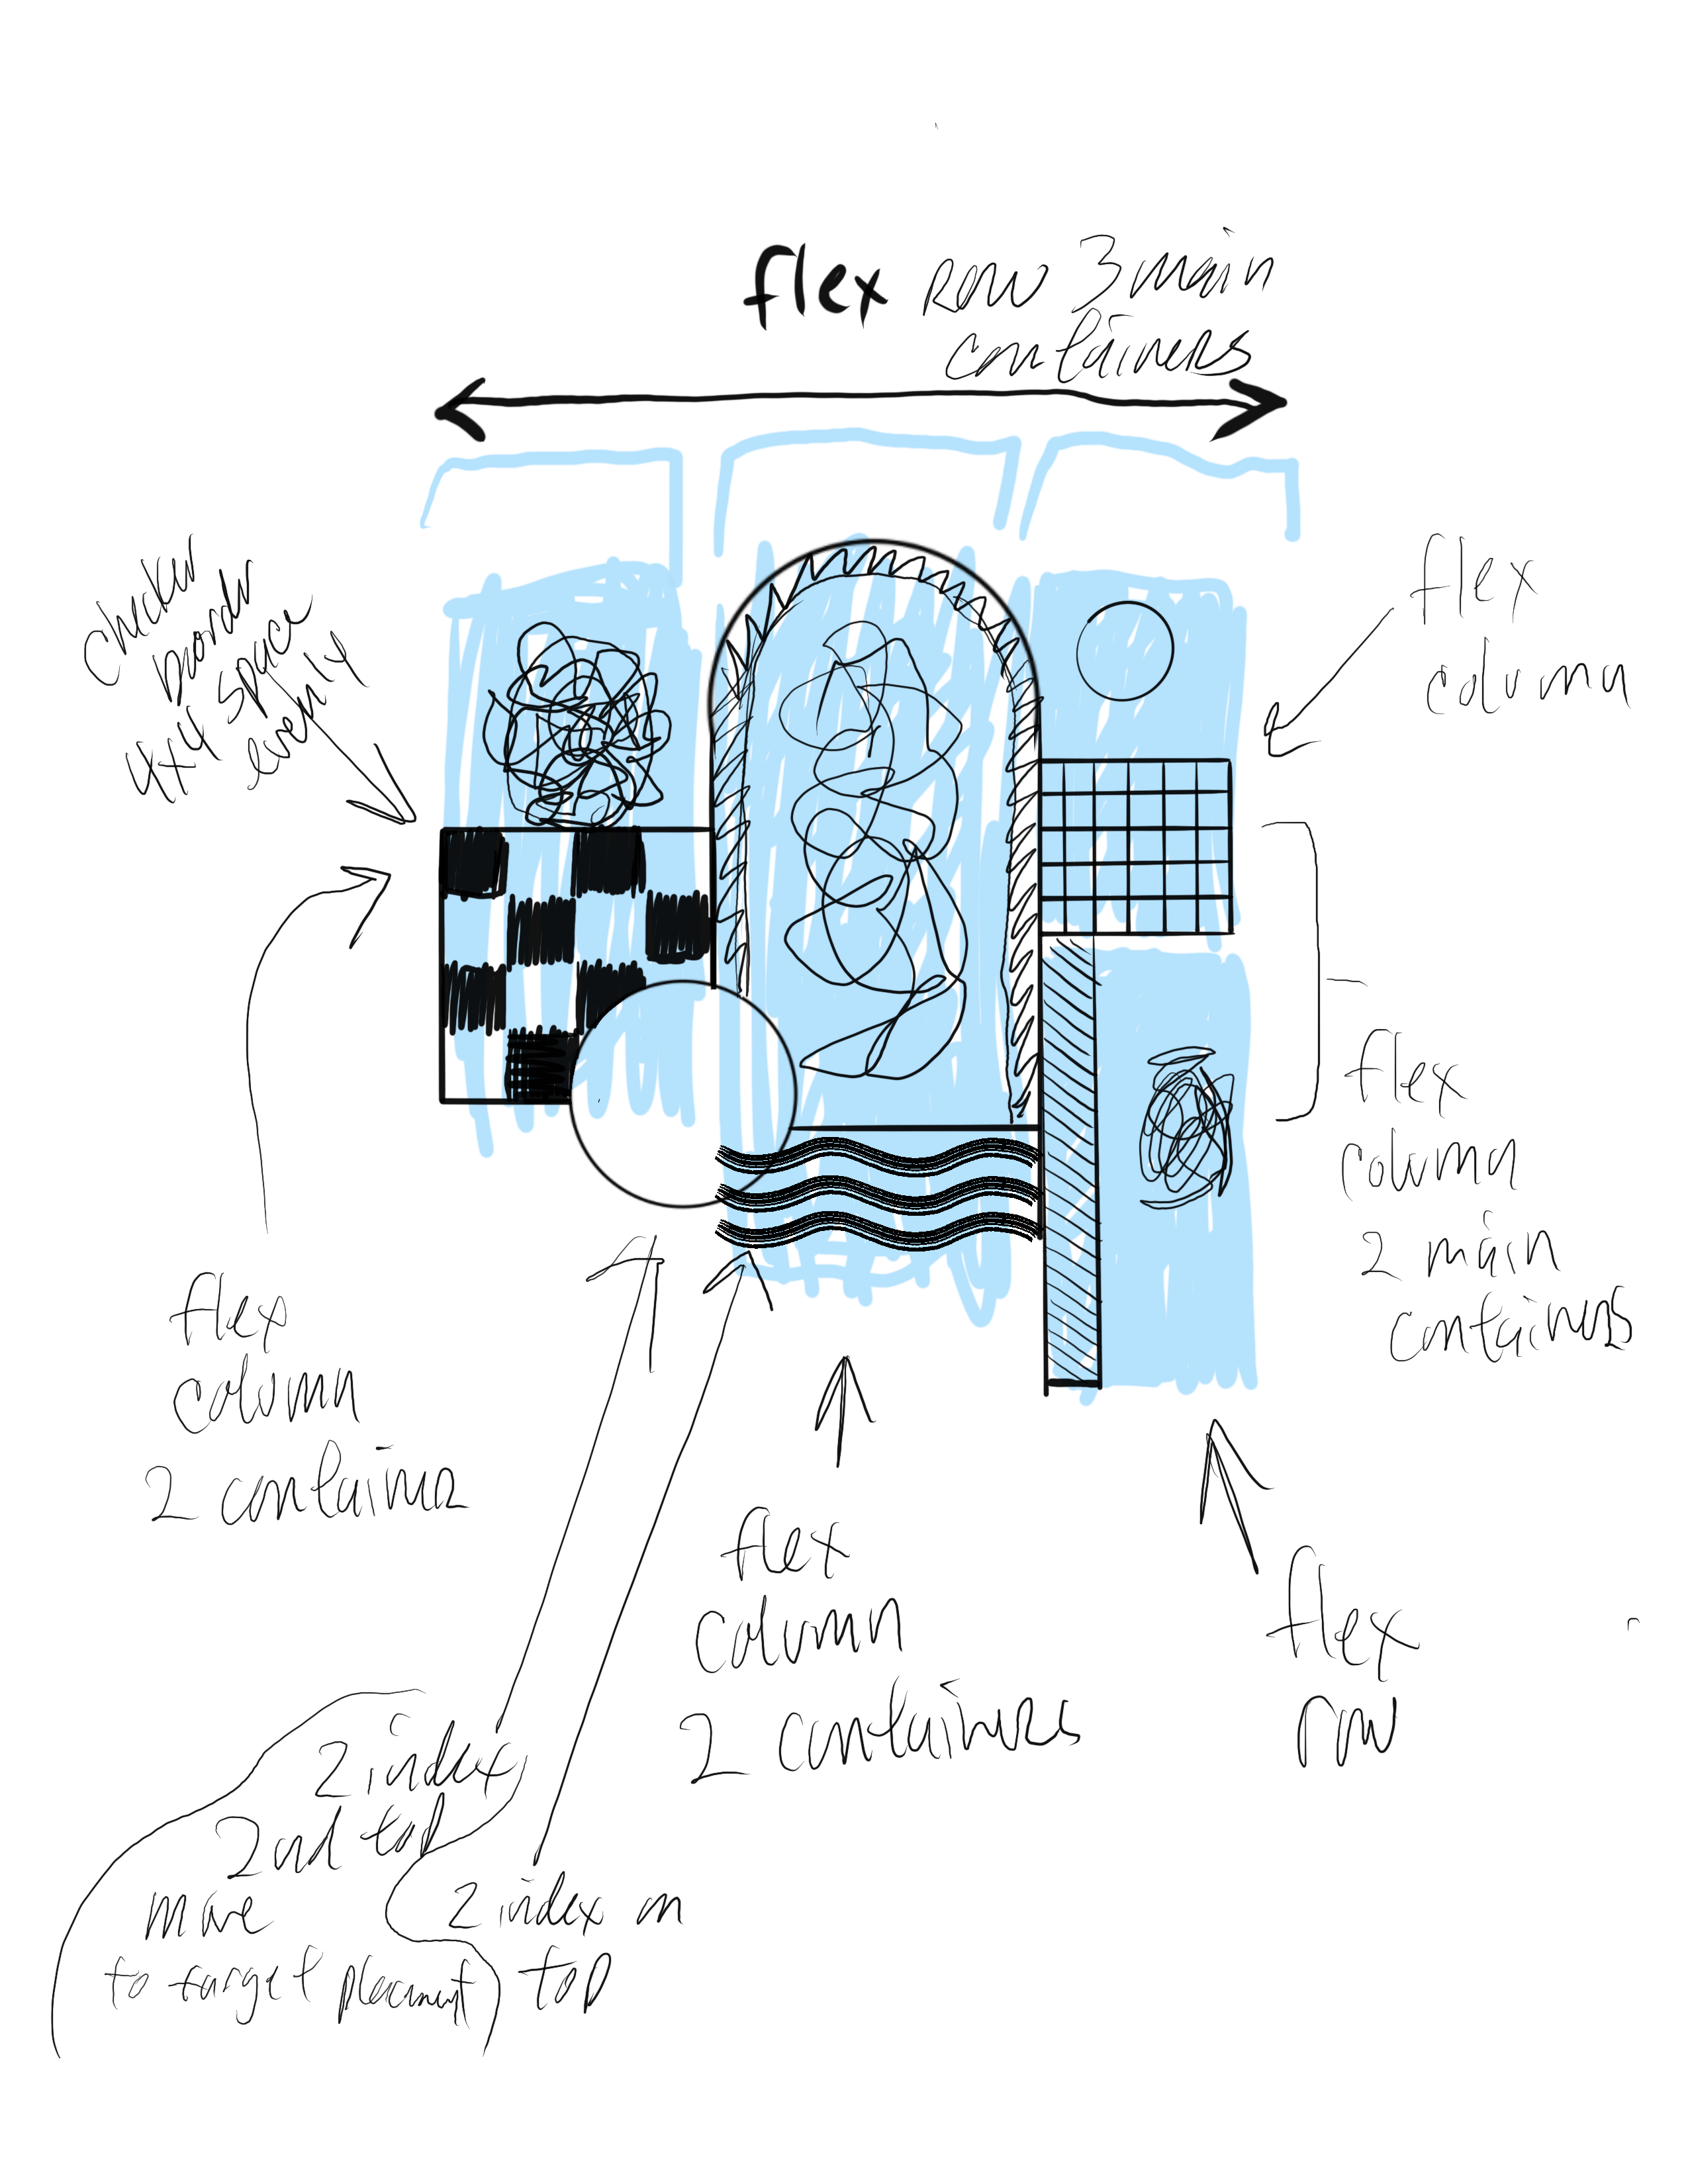 flex row 3 main
containers
checker
border
4x4 space
evenly
flex
column
flex
column
2 main
containers
flex
column
2 container
flex
column
2 containers
flex
row
z index
2nd top
move
to target placement
z index on
top